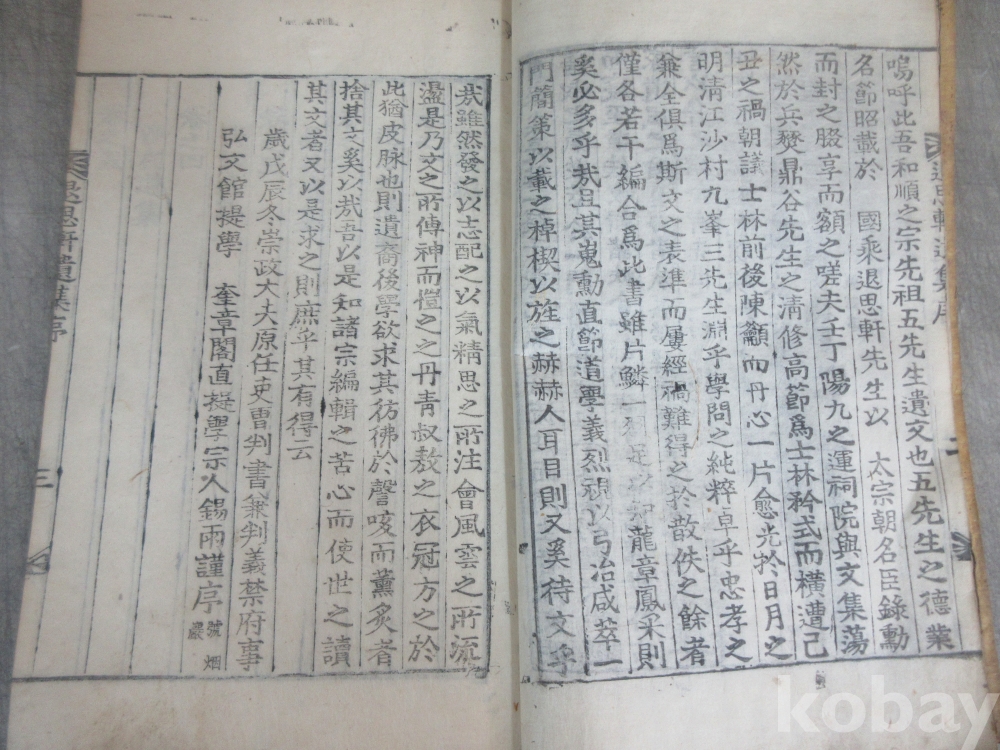 嗚呼此吾和順之宗先祖五先生遺文也五先生之德業
名節昭載於 國乘退思軒先生以 太宗朝名臣錄勳
而封之腏享而額之嗟夫壬丁陽九之運祠院與文集蕩
然於兵燹鼎谷先生之清修高節爲士林矜式而橫遭己
丑之禍朝議士林前後陳籲而丹心一片愈光於日月之
明清江沙村九峯三先生淵乎學問之純粹卓乎忠孝之
兼全俱爲斯文之表準而屢經禍難得之於散佚之餘者
僅各若干編合爲此書雖片鱗一 足以知龍章鳳采則
奚必多乎哉且其嵬勳直節道學義烈禪以弓冶咸萃一
門簡策以載之棹楔以旌之赫赫人耳目則又奚待文乎
哉雖然發之以志配之以氣精思之所注會風雲之所流
盪是乃文之所傳神而愷之之丹青叔敖之衣冠方之於
此猶皮脉也則遺裔後學欲求其彷彿於謦咳而薰炙者
捨其文奚以哉吾以是知諸宗編輯之苦心而使世之讀
其文者又以是求之則庶乎其有得云
歲戊辰冬崇政大夫原任吏曹判書兼判義禁府事
弘文館提學 奎章閣直提學宗人錫雨謹序 號烟農
退思軒遺集序
三